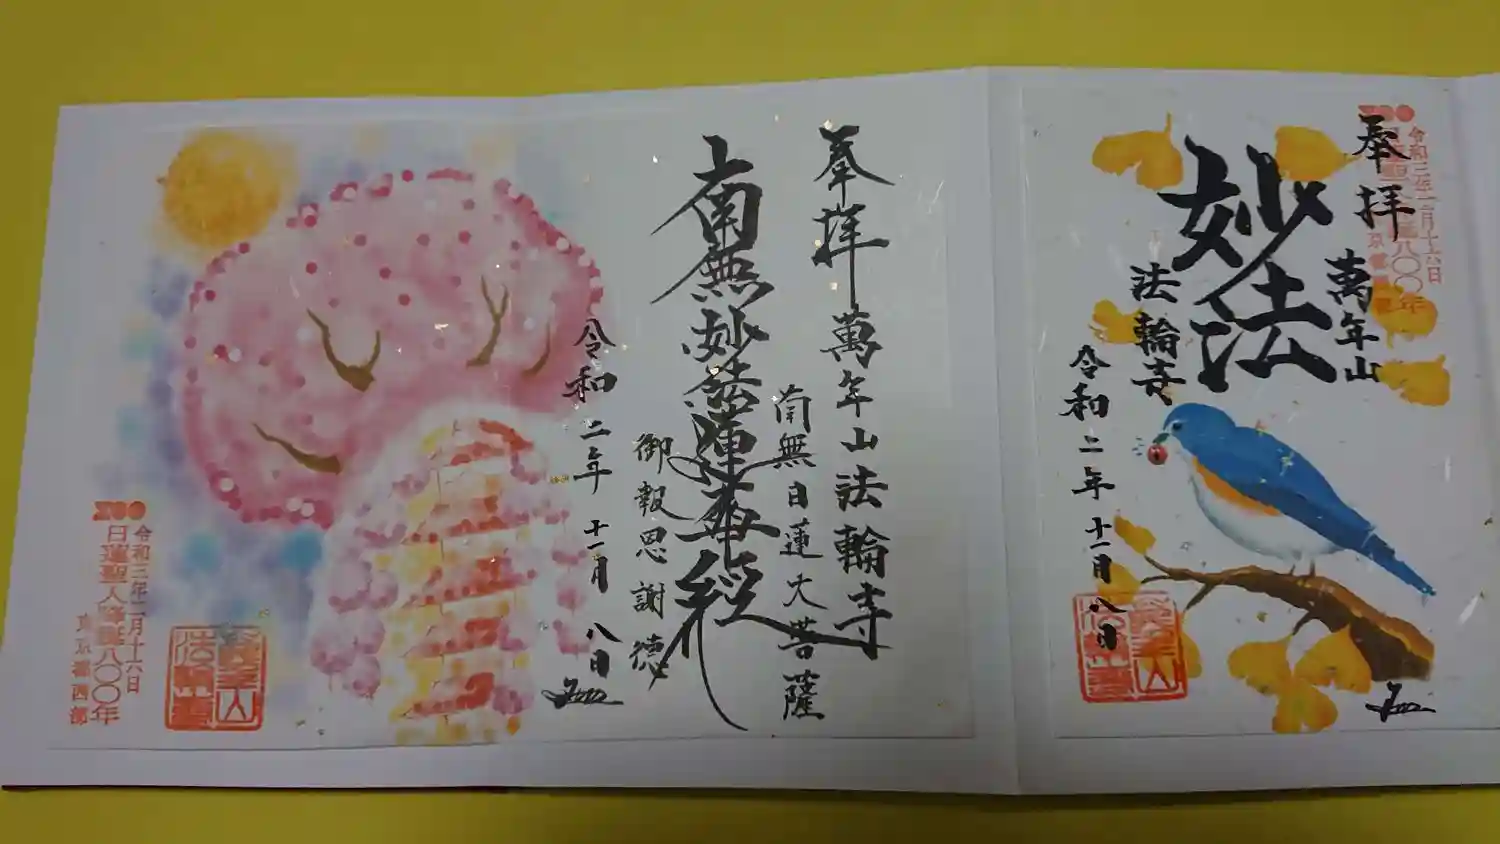 奉拝
萬年山
妙法
法輪寺
令和二年十一月八日
令和三年二月十六日
奉拝 萬年山法輪寺
南無日蓮大菩薩
南無妙法蓮華経
御報恩謝徳
令和二年十一月八日
令和三年二月十六日
日蓮聖人降誕八〇〇年
東京都西部